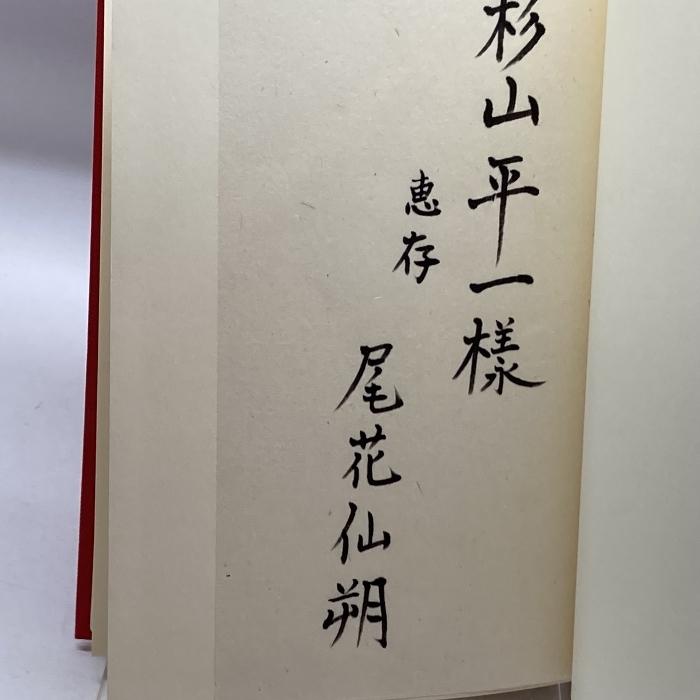 杉山平一樣
惠存
尾花仙朔